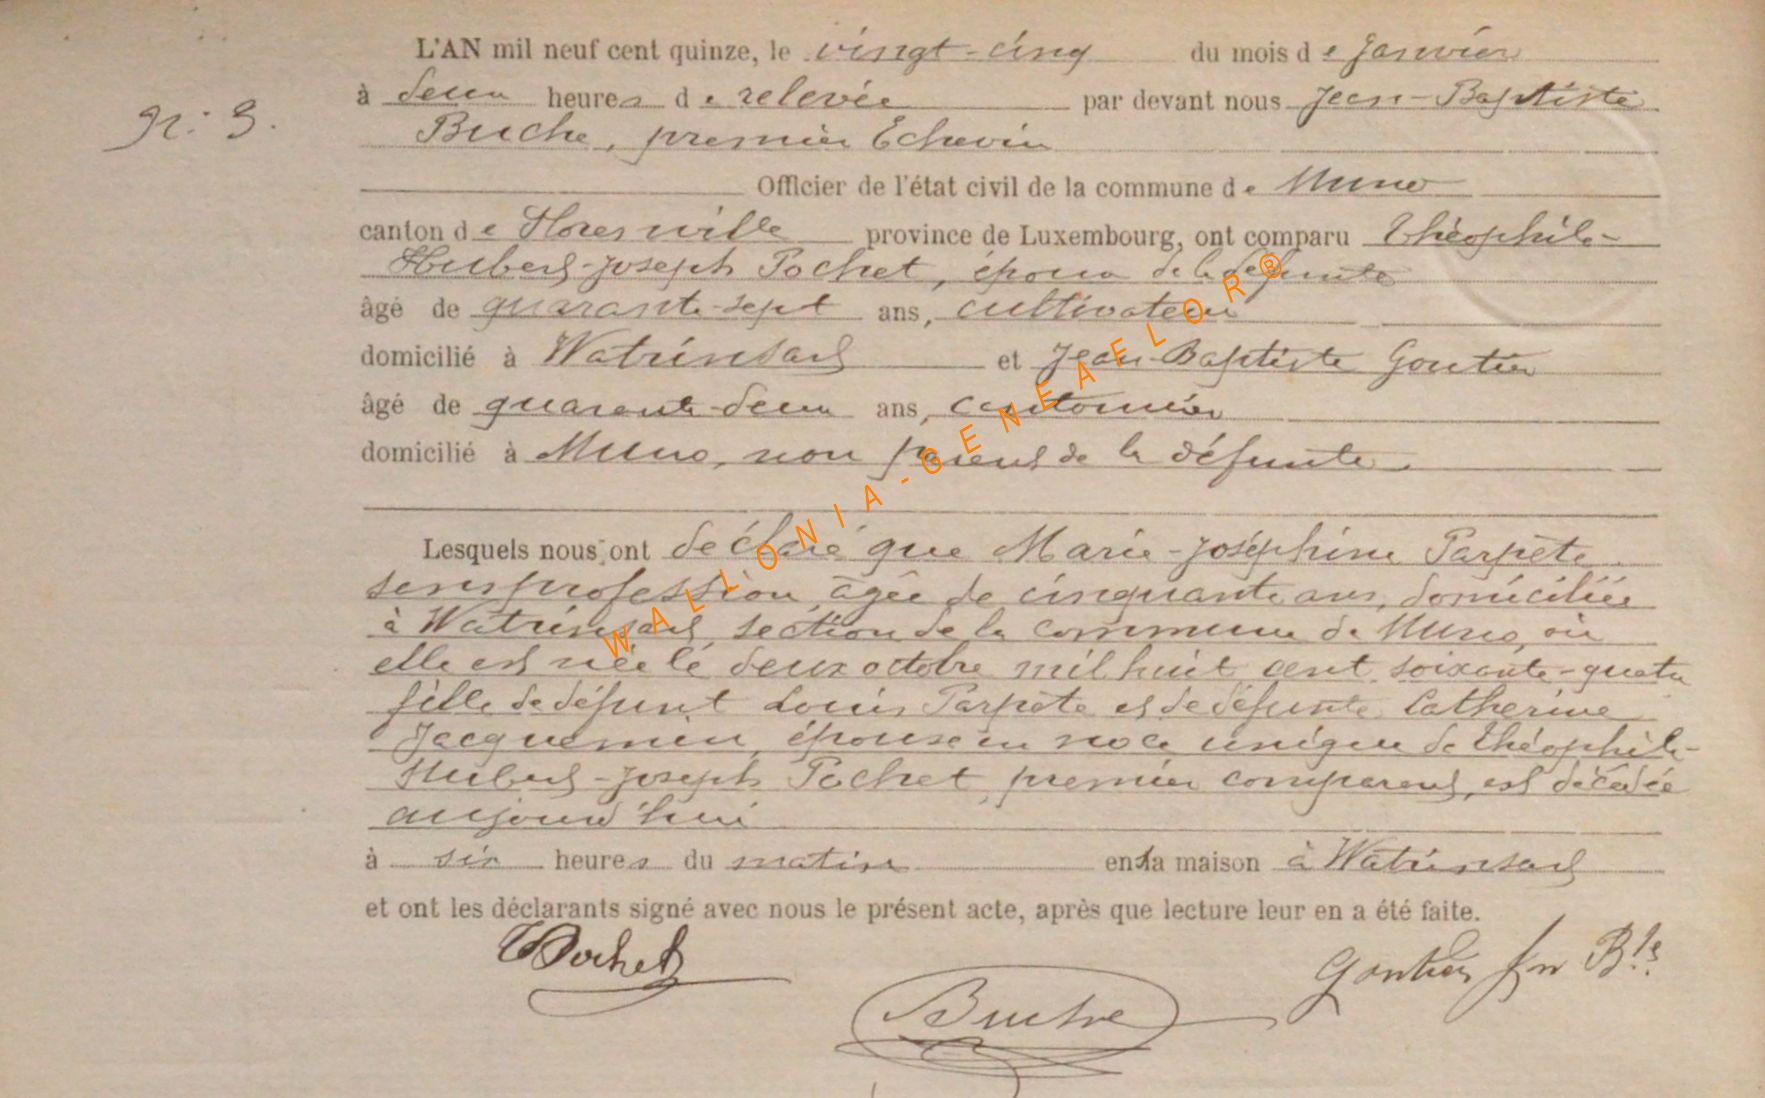 L'AN mil neuf cent quinze, le vingt-cinq du mois de Janvier
à deux heures de relevée par devant nous Jean-Baptiste
N: 3.
Buche, premier Echevin
Officier de l'état civil de la commune de Muno
canton de Florenville province de Luxembourg, ont comparu Théophile-
Hubert-Joseph Pochet, époux de la défunte
âgé de quarante-sept ans, cultivateur
domicilié à Watrinsart et Jean-Baptiste Goutier
âgé de quarante-deux ans, cantonnier
domicilié à Muno, non parent de la défunte.
Lesquels nous ont déclaré que Marie-Joséphine Parpète
sans profession, âgée de cinquante ans, domiciliée
à Watrinsart, section de la commune de Muno, où
elle est née le deux octobre mil huit cent soixante-quatre
fille de défunt Louis Parpète et de défunte Catherine
Jacquemin, épouse en noce unique de Théophile-
Hubert-Joseph Pochet, premier comparant, est décédée
aujourd'hui
à six heures du matin en sa maison à Watrinsart
et ont les déclarants signé avec nous le présent acte, après que lecture leur en a été faite.
TPochet
Goutier Jn Bte
Buche
WALLONIA-GENEAELOR®